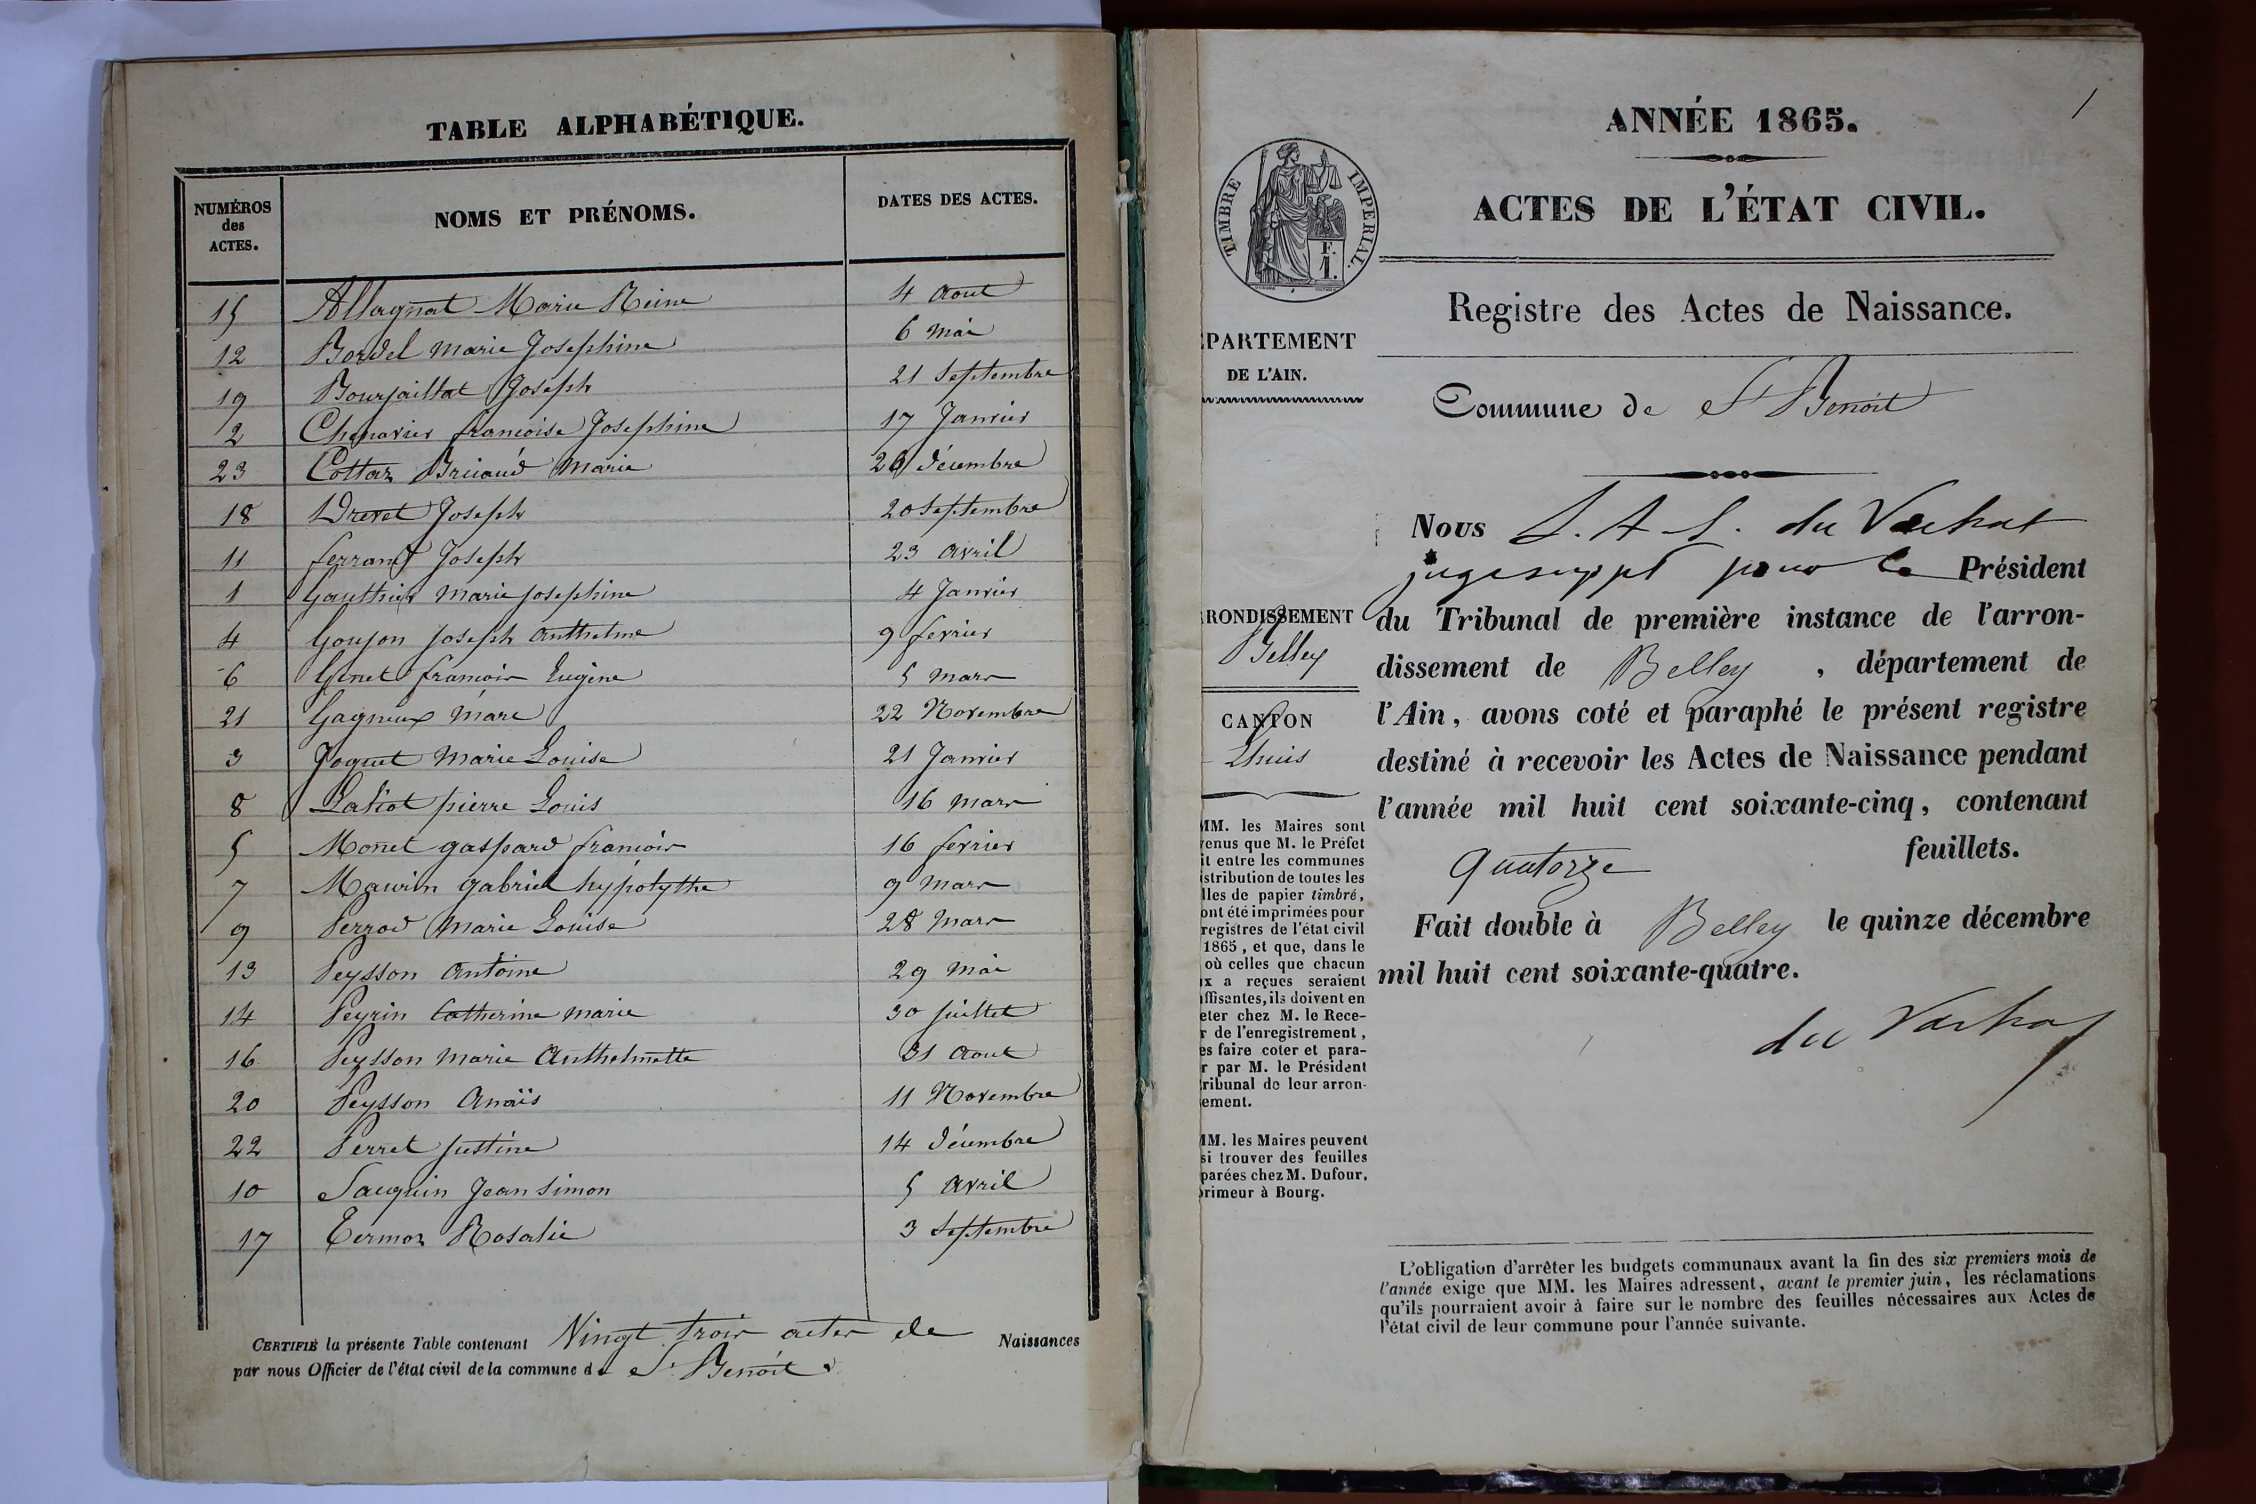 TABLE ALPHABÉTIQUE.
NUMÉROS des ACTES.
NOMS ET PRÉNOMS.
DATES DES ACTES.
15 Allagnat Marie Reine 4 Aout
12 Bordel Marie Josephine 6 Mai
19 Bourjaillat Joseph 21 Septembre
2 Chenavier francoise Josephine 17 Janvier
23 Cottaz Bricaud Marie 26 décembre
18 Drevet Joseph 20 Septembre
11 ferrand Joseph 23 avril
1 Gauthier Marie Josephine 4 Janvier
4 Goujon Joseph Anthelme 9 fevrier
6 Genet francois Eugène 5 mars
21 Gagneux Marc 22 Novembre
3 Joguet Marie Louise 21 Janvier
8 pierre Louis 16 mars
5 Monet gaspard francois 16 fevrier
7 Maurin gabriel hypolythe 9 mars
9 Perrod Marie Louise 28 mars
13 Peysson Antoine 29 Mai
14 Peyrin Catherine Marie 30 juillet
16 Peysson Marie Anthelmette 31 Aout
20 Peysson Anaïs 11 Novembre
22 Perret Justine 14 décembre
10 Sauguin Jean Simon 5 Avril
17 Termoz Rosalie 3 Septembre
CERTIFIÉ la présente Table contenant Vingt trois actes de Naissances
par nous Officier de l'état civil de la commune de St Benoit
1
ANNÉE 1865.
TIMBRE IMPERIAL.
ACTES DE L'ÉTAT CIVIL.
Registre des Actes de Naissance.
PARTEMENT
DE L'AIN.
Commune de St Benoit
Nous L. A. L. du Vachat
juge suppt pour le Président
RONDISSEMENT
Belley
du Tribunal de première instance de l'arron-
dissement de Belley, département de
CANTON
Lhuis
l'Ain, avons coté et paraphé le présent registre
destiné à recevoir les Actes de Naissance pendant
l'année mil huit cent soixante-cinq, contenant
quatorze feuillets.
Fait double à Belley le quinze décembre
mil huit cent soixante-quatre.
du Vachat
MM. les Maires sont
venus que M. le Préfet
it entre les communes
istribution de toutes les
lles de papier timbré,
ont été imprimées pour
registres de l'état civil
1865, et que, dans le
où celles que chacun
x a reçues seraient
ffisantes, ils doivent en
eter chez M. le Rece-
r de l'enregistrement,
es faire coter et para-
r par M. le Président
ribunal de leur arron-
ement.
MM. les Maires peuvent
si trouver des feuilles
parées chez M. Dufour,
rimeur à Bourg.
L'obligation d'arrêter les budgets communaux avant la fin des six premiers mois de
l'année exige que MM. les Maires adressent, avant le premier juin, les réclamations
qu'ils pourraient avoir à faire sur le nombre des feuilles nécessaires aux Actes de
l'état civil de leur commune pour l'année suivante.